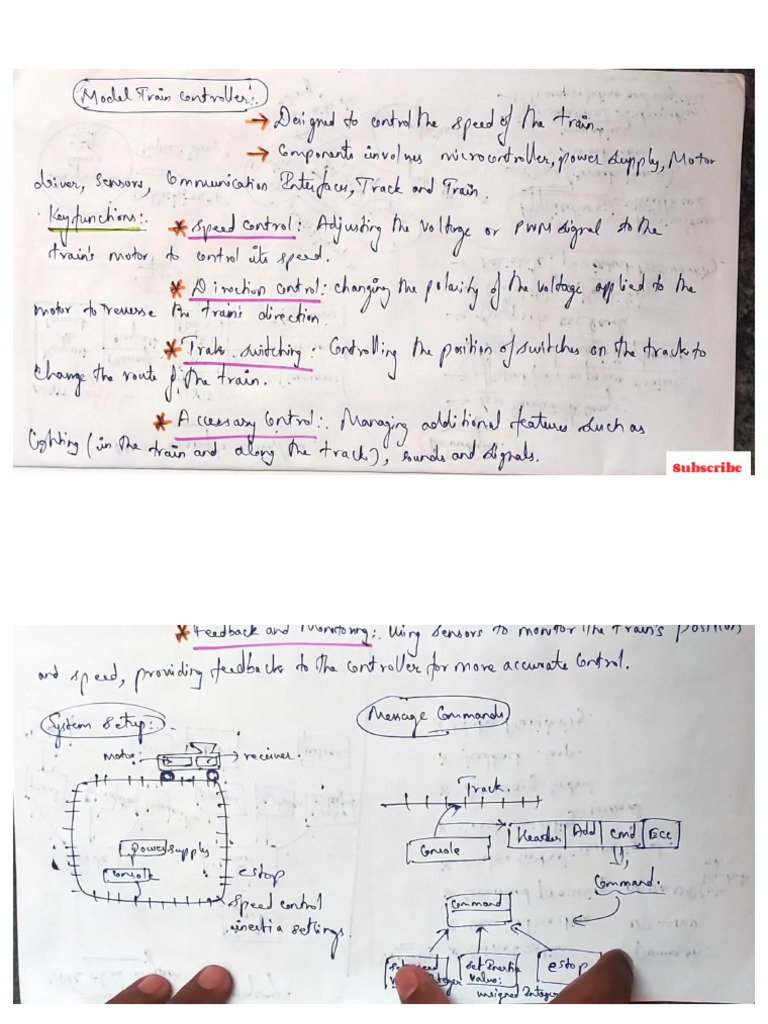 Model Train Controller:.
→ Designed to control the speed of the train.
→ Components involves microcontroller, power supply, Motor
driver, Sensors, Communication Interfaces, Track and Train.
Key functions:. * Speed control:. Adjusting the voltage or PWM signal to the
train's motor to control its speed.
* Direction control: changing the polarity of the voltage applied to the
motor to reverse the train's direction.
* switching: Controlling the position of switches on the track to
change the route of the train.
* Accessary Control:. Managing additional features such as
lighting (in the train and along the track), sounds and signals.
Subscribe
* Feedback and Monitoring:. Using sensors to monitor the train's position
and speed, providing feedbacks to the controller for more accurate control.
System Setup:.
motor
receiver
power supply
Console
estop
speed control
inertia settings.
Message Commands
Track.
Console
Header Add Cmd Ecc
Command.
Command
Set Inertia
Value:
unsigned Integer
estop